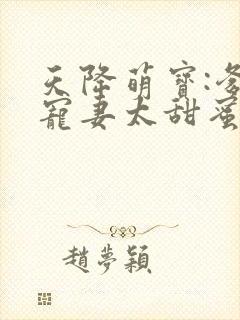 天降萌寶:爹
寵妻太甜蜜
趙夢穎